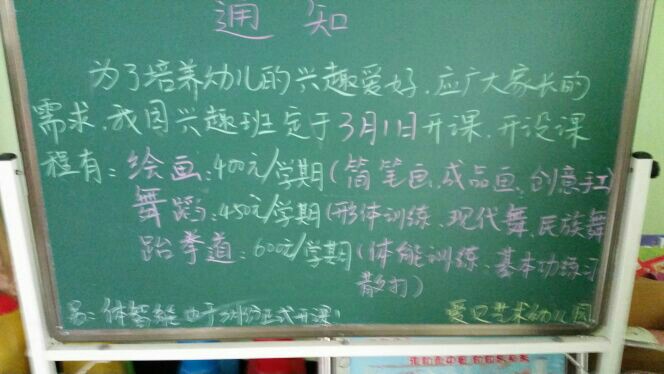 通知
为了培养幼儿的兴趣爱好,应广大家长的
需求,我园兴趣班定于3月1日开课,开设课
程有:绘画:400元/学期(简笔画、成品画、创意手工)
舞蹈:450元/学期(形体训练、现代舞、民族舞
跆拳道:600元/学期(体能训练、基本功练习
散打)
另:体智能 于 3月份正式开课!
艺术幼儿园